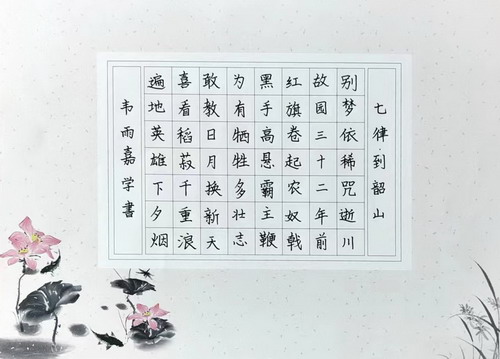 七律·到韶山
别梦依稀咒逝川
故园三十二年前
红旗卷起农奴戟
黑手高悬霸主鞭
为有牺牲多壮志
敢教日月换新天
喜看稻菽千重浪
遍地英雄下夕烟
韦雨嘉学書